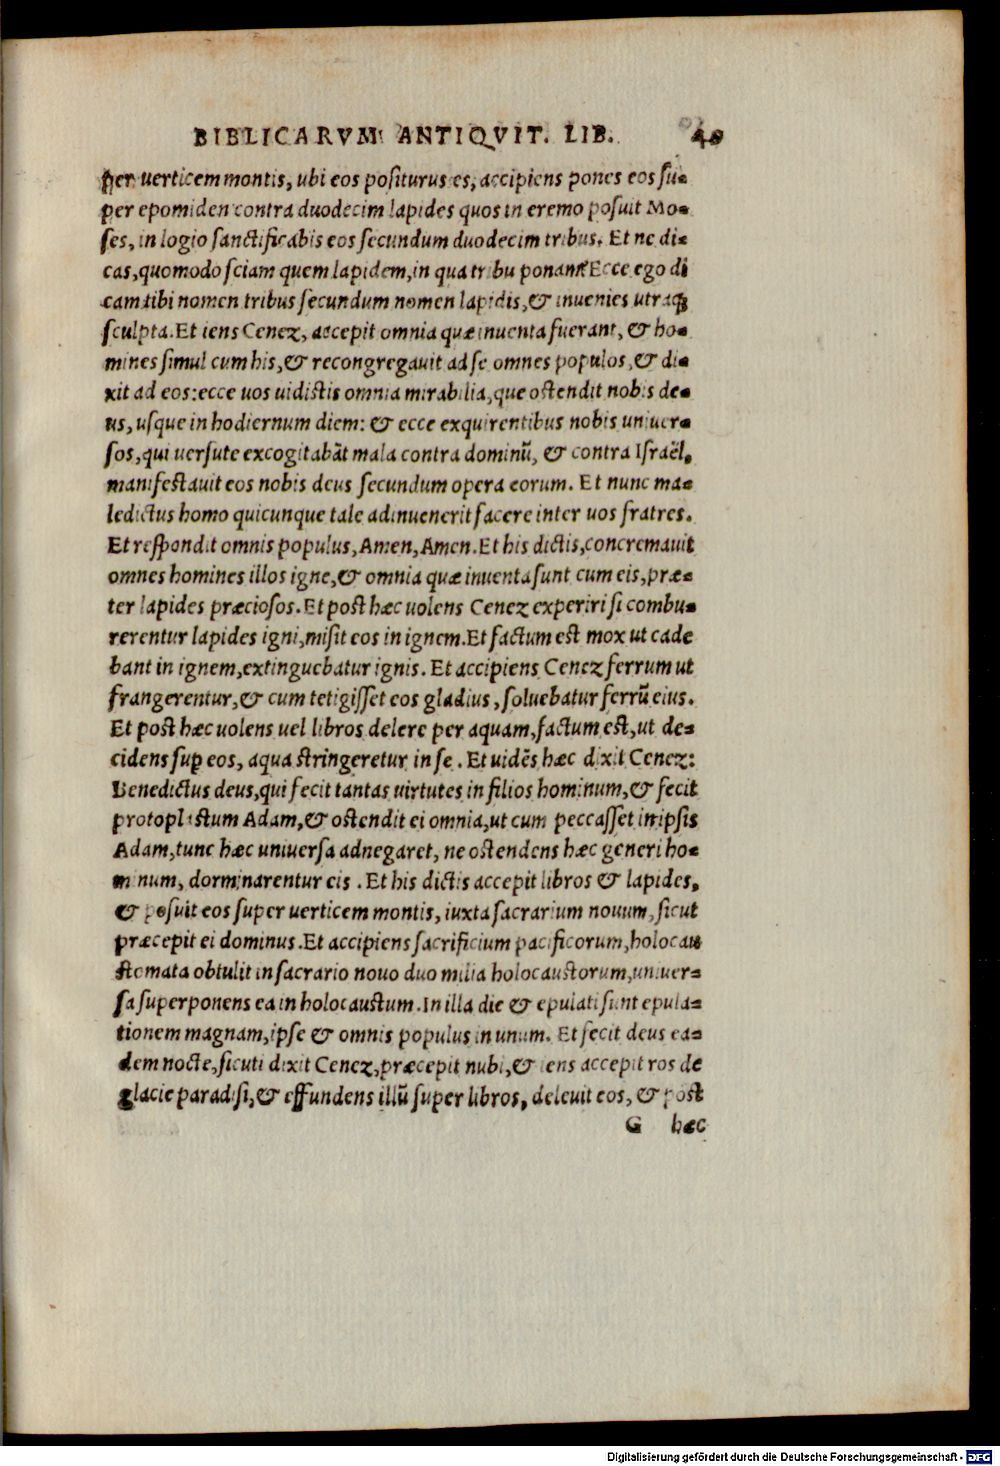 BIBLICARVM ANTIQVIT. LIB. 40
per uerticem montis, ubi eos positurus es, accipiens pones eos su-
per epomiden contra duodecim lapides quos in eremo posuit Mo-
ses, in logio sanctificabis eos secundum duodecim tribus. Et ne di-
cas, quomodo sciam quem lapidem, in qua tribu ponam? Ecce ego di
cam tibi nomen tribus secundum nomen lapidis, & inuenies utraq;
sculpta. Et iens Cenez, accepit omnia quæ inuenta fuerant, & ho-
mines simul cum his, & recongregauit ad se omnes populos, & di-
xit ad eos: ecce uos uidistis omnia mirabilia, que ostendit nobis de-
us, usque in hodiernum diem: & ecce exquirentibus nobis uniuer-
sos, qui uersute excogitabāt mala contra dominū, & contra Israël,
manifestauit eos nobis deus secundum opera eorum. Et nunc ma-
ledictus homo quicunque tale adinuenerit facere inter uos fratres.
Et respondit omnis populus, Amen, Amen. Et his dictis, concremauit
omnes homines illos igne, & omnia quæ inuenta sunt cum eis, præ-
ter lapides præciosos. Et post hæc uolens Cenez experiri si combu-
rerentur lapides igni, misit eos in ignem. Et factum est mox ut cade
bant in ignem, extinguebatur ignis. Et accipiens Cenez ferrum ut
frangerentur, & cum tetigisset eos gladius, soluebatur ferrū eius.
Et post hæc uolens uel libros delere per aquam, factum est, ut de-
cidens sup eos, aqua stringeretur in se. Et uidēs hæc dixit Cenez:
Benedictus deus, qui fecit tantas uirtutes in filios hominum, & fecit
protoplastum Adam, & ostendit ei omnia, ut cum peccasset in ipsis
Adam, tunc hæc uniuersa adnegaret, ne ostendens hæc generi ho-
minum, dorminarentur eis. Et his dictis accepit libros & lapides,
& posuit eos super uerticem montis, iuxta sacrarium nouum, sicut
præcepit ei dominus. Et accipiens sacrificium pacificorum, holocau
stomata obtulit in sacrario nouo duo milia holocaustorum, uniuer-
sa superponens ea in holocaustum. In illa die & epulati sunt epula-
tionem magnam, ipse & omnis populus in unum. Et fecit deus ea-
dem nocte, sicuti dixit Cenez, præcepit nubi, & iens accepit ros de
glacie paradisi, & effundens illū super libros, deleuit eos, & post
G hæc
Digitalisierung gefördert durch die Deutsche Forschungsgemeinschaft - DFG